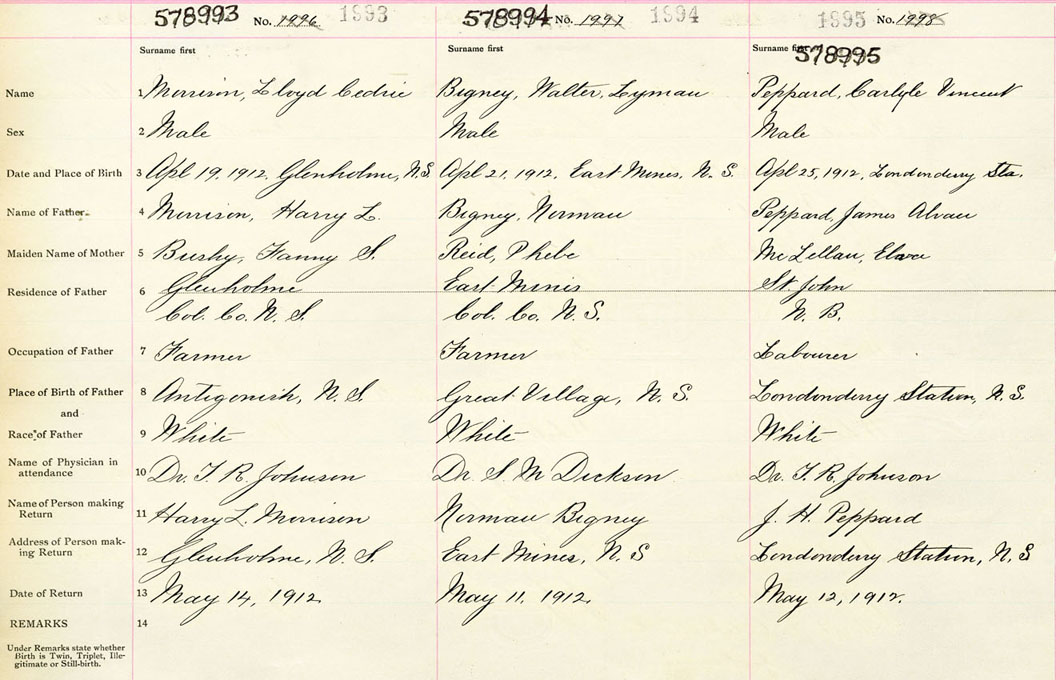 578993 No. 1996 1993 578994 No. 1997 1994 1995 No. 1998
Surname first Surname first Surname first 578995
Name 1 Morrison, Lloyd Cedric Bigney, Walter, Lyman Peppard, Carlyle Vincent
Sex 2 Male Male Male
Date and Place of Birth 3 Apl 19, 1912, Glenholme, N.S. Apl 21, 1912, East Mines, N. S. Apl 25, 1912, Londonderry Sta.
Name of Father 4 Morrison, Harry L. Bigney, Norman Peppard, James Alvan
Maiden Name of Mother 5 Bushy, Fanny S. Reid, Phebe McLellan, Elva
Residence of Father 6 Glenholme East Mines St. John
Col. Co. N. S. Col. Co. N. S. N. B.
Occupation of Father 7 Farmer Farmer Labourer
Place of Birth of Father 8 Antigonish, N. S. Great Village, N. S. Londonderry Station, N. S.
and
Race of Father 9 White White White
Name of Physician in
attendance 10 Dr. T. R. Johnson Dr. S. M Dickson Dr. T. R. Johnson
Name of Person making
Return 11 Harry L. Morrison Norman Bigney J. H. Peppard
Address of Person mak-
ing Return 12 Glenholme, N. S. East Mines, N. S Londonderry Station, N. S
Date of Return 13 May 14, 1912 May 11, 1912. May 12, 1912.
REMARKS 14
Under Remarks state whether
Birth is Twin, Triplet, Ille-
gitimate or Still-birth.